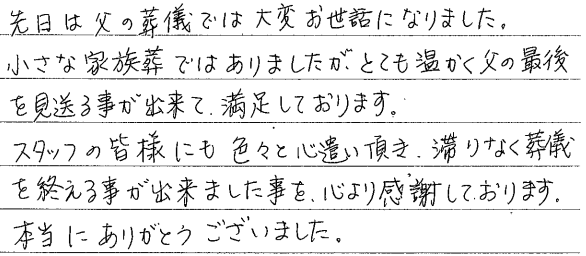 先日は父の葬儀では大変お世話になりました。
小さな家族葬ではありましたが、とても温かく父の最後
を見送る事が出来て、満足しております。
スタッフの皆様にも色々と心遣い頂き、滞りなく葬儀
を終える事が出来ました事を、心より感謝しております。
本当にありがとうございました。